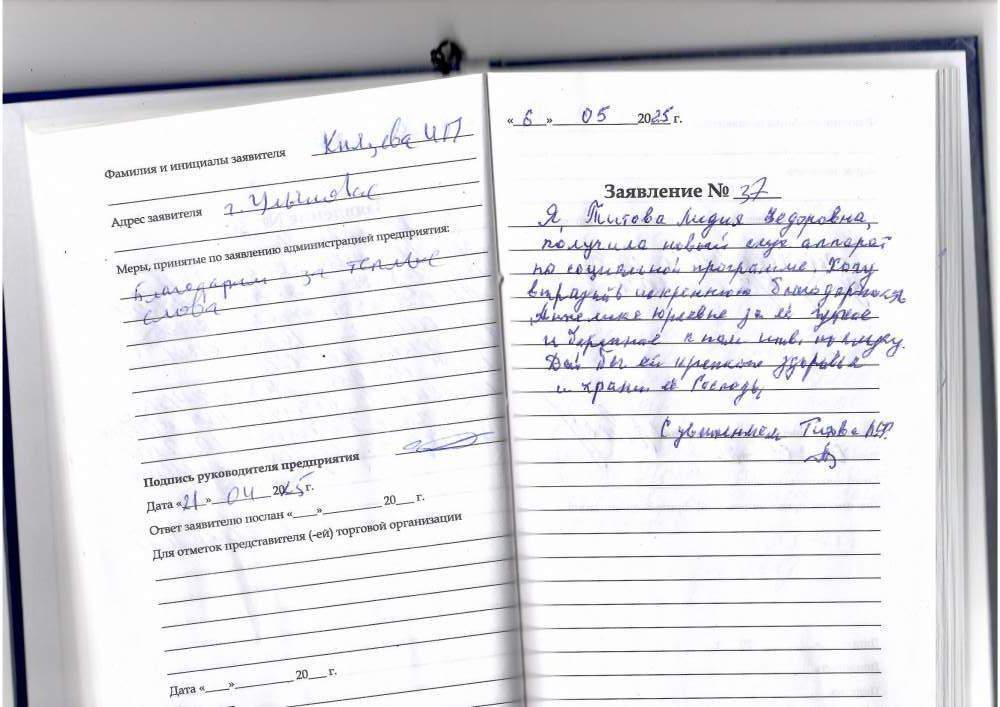 Фамилия и инициалы заявителя И П
Адрес заявителя г.
Меры, принятые по заявлению администрацией предприятия:
Благодарим за теплые
слова
Подпись руководителя предприятия
Дата «21» 04 2025 г.
Ответ заявителю послан «___»_________ 20___ г.
Для отметок представителя (-ей) торговой организации
Дата «___»_________ 20___ г.
« 6 » 05 2025 г.
Заявление № 37
Я, Титова Лидия Федоровна,
получила новый слух аппарат
по социальной программе. Хочу
выразить искреннюю благодарность
Анжелике Юрьевне за её чуткое
и бережное к нам
Дай Бог ей крепкого здоровья
и храни её Господь,
С уважением Титова Л.Ф.